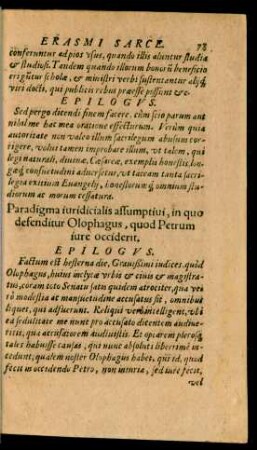 ERASMI SARCE. 78
conferuntur ad pios vsus, quando illis aluntur studia
& studiosi. Tandem quando illorum bonorū beneficio
eriguntur scholæ, & ministri verbi sustentantur alijq́;
viri docti, qui publicis rebus præesse possunt &c.
EPILOGVS.
Sed pergo dicendi finem facere. cùm scio parum aut
nihil me hac mea oratione effecturum. Verùm quia
autoritate non valeo illum sacrilegum abusum cor-
rigere, volui tamen improbare illum, vt talem, qui
legi naturali, diuinæ, Cæsareæ, exemplis honestis, lon-
gæq́; consuetudini aduersetur, vt taceam tanta sacri-
legia exitium Euangelij, honestorum q́; omnium stu-
diorum ac morum cessatura.
Paradigma iuridicialis assumptiui, in quo
defenditur Olophagus, quod Petrum
iure occiderit.
EPILOGVS.
Factum est hesterna die, Grauissimi iudices. quòd
Olophagus, huius inclytæ vrbis & ciuis & magistra-
tus, coram toto Senatu satis quidem atrociter, qua ve-
rò modestia ac mansuetudine accusatus sit, omnibus
liquet, qui adfuerunt. Reliqui verò intelligent, vbi
ea sedulitate me nunc pro accusato dicentem audiue-
ritis, qua accusatorem audiuistis. Et opárem plerosq́;
tales habuisse causas, qui nunc absoluti liberrimè in-
cedunt, qualem noster Olophagus habet, qui id, quod
fecit in occidendo Petro, non iniuria, sed iure fecit,
vel